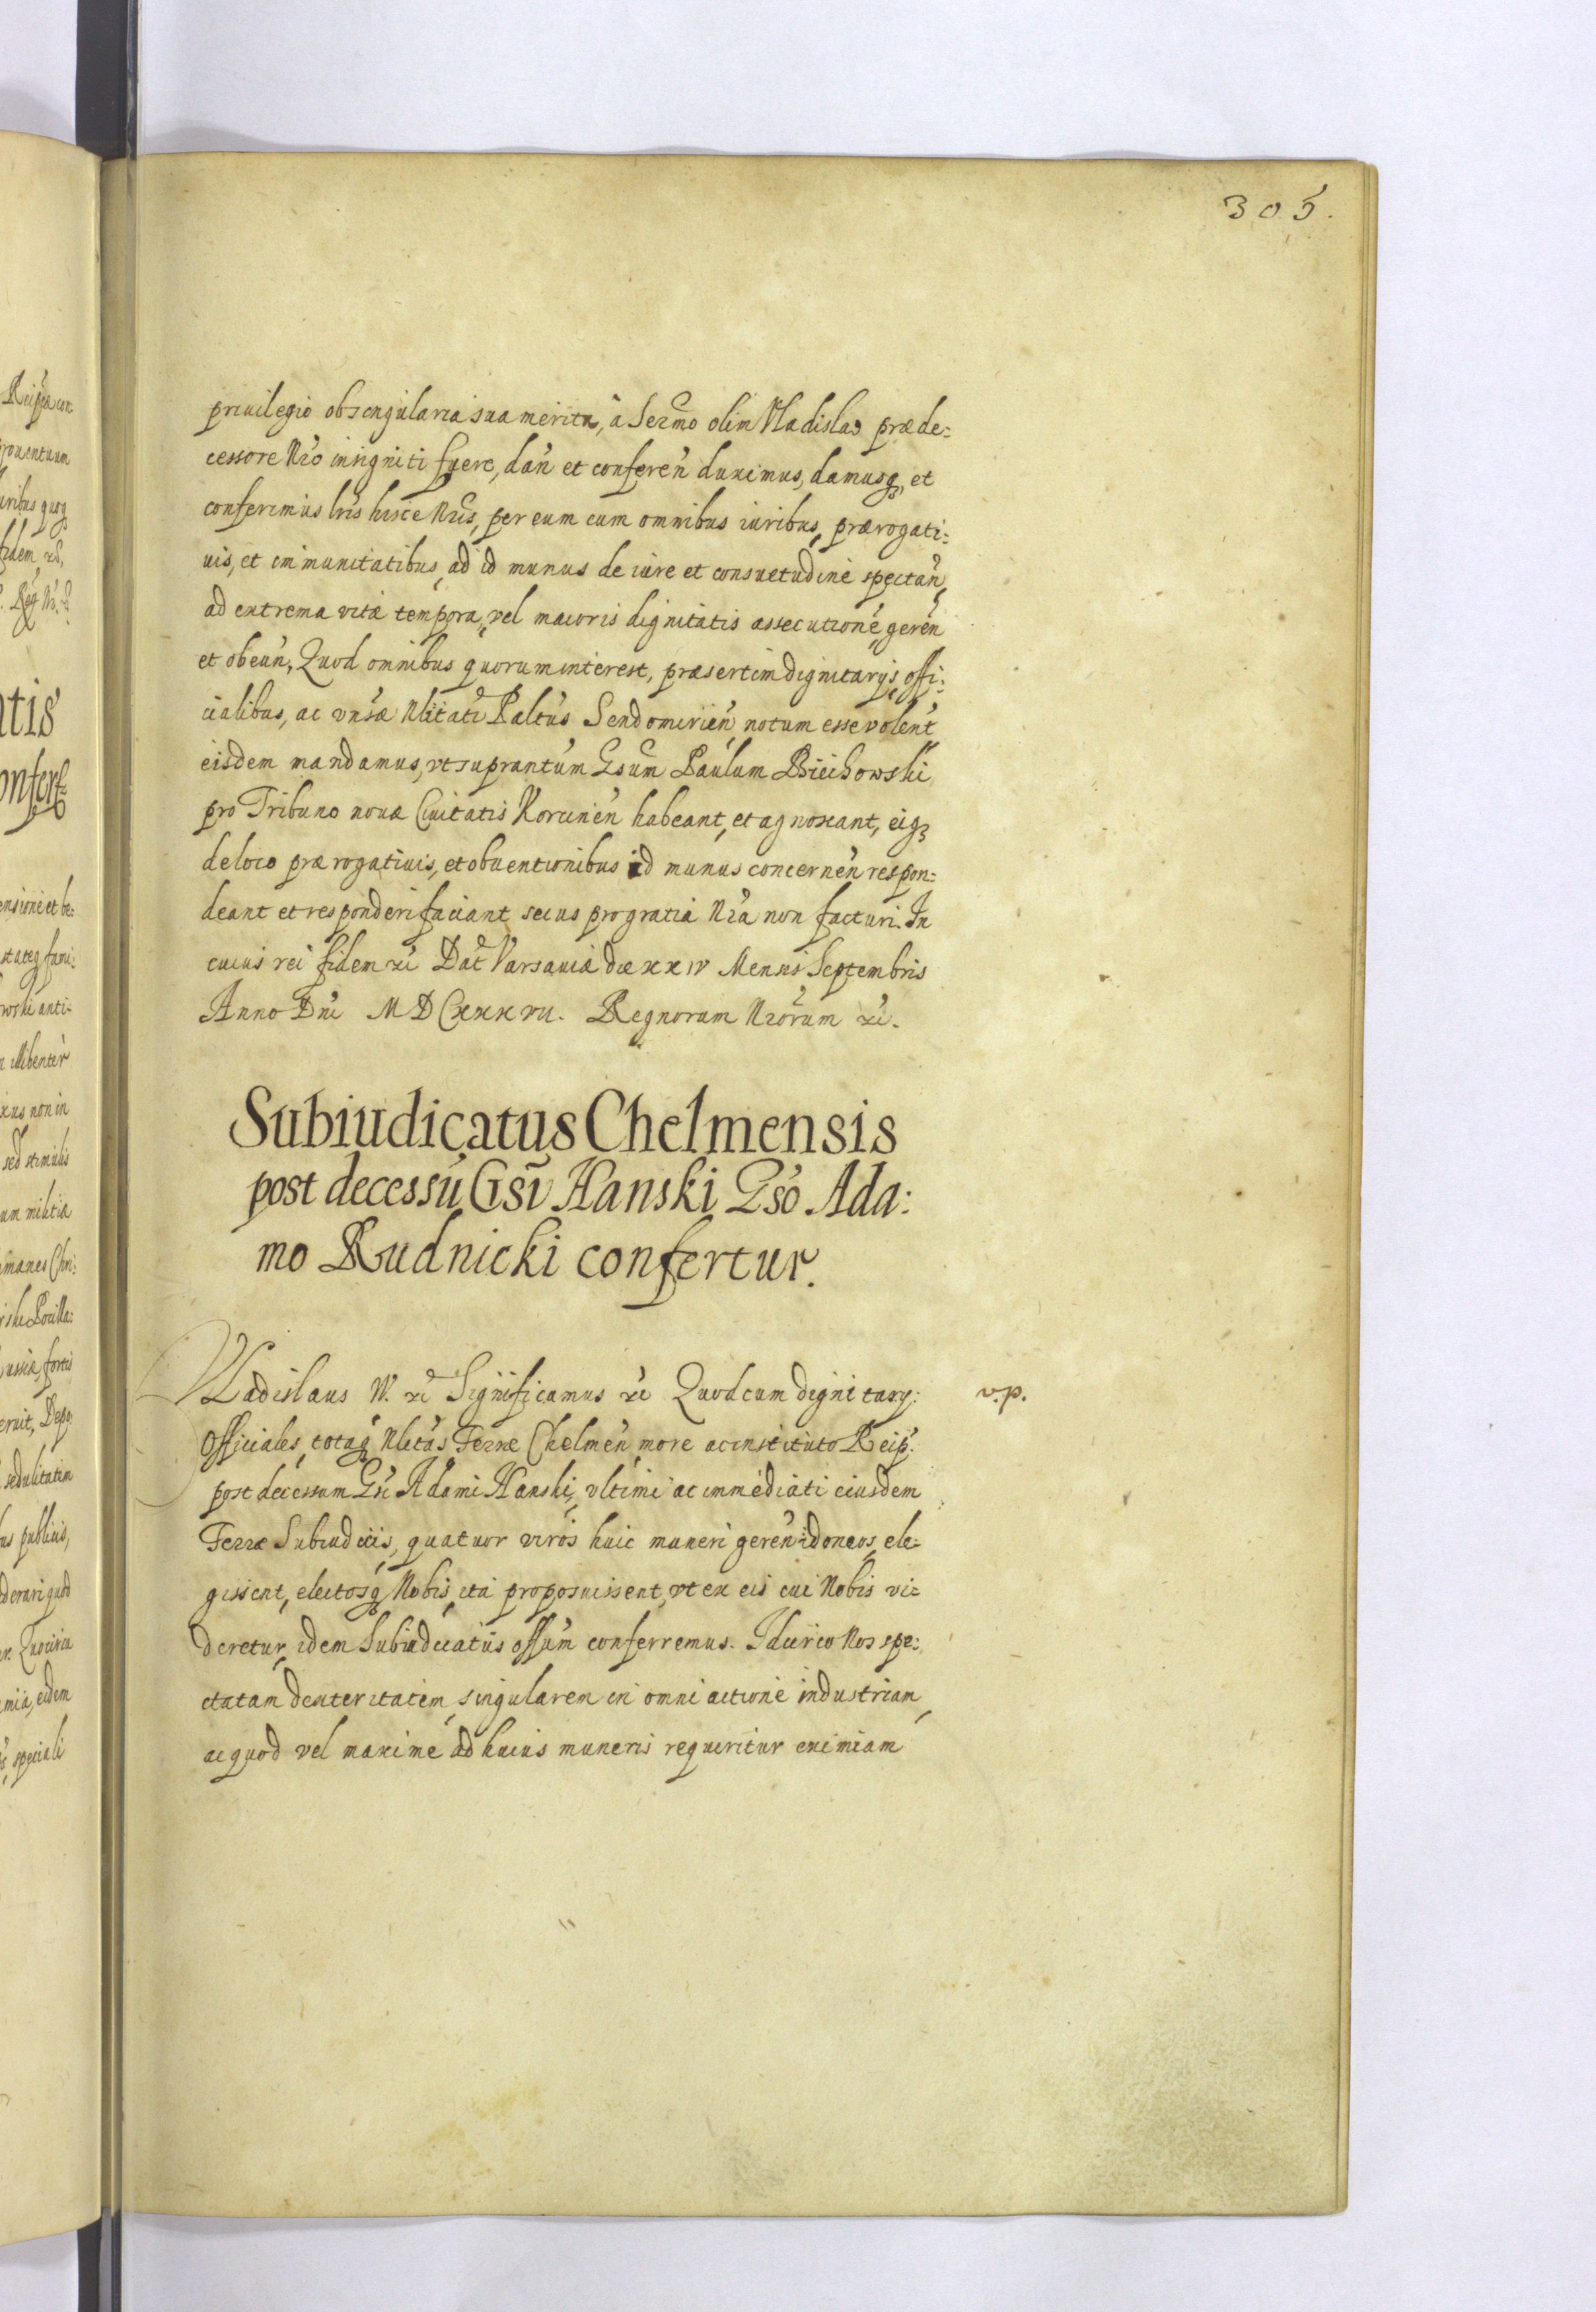 305.
priuilegio ob singularia sua merita, à Sermo olim Vladislao præde:
cessore Nro insigniti fuere, dan̄ et conferen̄ duximus, damusq, et
conferimus lr̄is hisce Nr̄is, per eum cum omnibus iuribus, prærogati:
uis, et immunitatibus, ad id munus de iure et consuetudine spectan̄,
ad extrema vitæ tempora, vel maioris dignitatis assecutionē, geren̄
et obeun̄, Quod omnibus quorum interest, præsertim dignitarijs, offi:
cialibus, ac vnīsæ Nlitati Paltūs Sendomirien̄ notum esse volen̄t
eisdem mandamus, vt supran̄tum Gsum Paulum Biechowski
pro Tribuno nouæ Ciuitatis Korcinen̄ habeant, et agnoscant, eiq
de loco prærogatiuis, et obuentionibus id munus concernen̄ respon:
deant et responderi faciant secus pro gratia Nr̄a non facturi. In
cuius rei fidem xc̄ Dat̄ Varsauiæ die xxiv Mensis Septembris
Anno Dn̄i MDCxxxvii. Regnorum Nr̄orum xc̄.
Subiudicatus Chelmensis
post decessū Gsi Hanski Gso Ada:
mo Rudnicki confertur.
Vladislaus IV. xc̄ Significamus xc̄ Quod cum dignitarij:
Officiales, totaq Nlitas Terræ Chelmen̄, more ac instituto Reip.
post decessum Gsi Adami Hanski, vltimi ac immediati eiusdem
Terræ Subiudicis, quatuor viros huic muneri geren̄ idoneos, ele:
gissent, electosq Nobis, ita proposuissent, vt ex eis cui Nobis vi:
deretur, idem Subiudicatus offūm conferremus. Idcirco Nos spe:
ctatam dexteritatem, singularem in omni actione industriam,
ac quod vel maximè ad huius muneris requiritur eximiam
v.p.